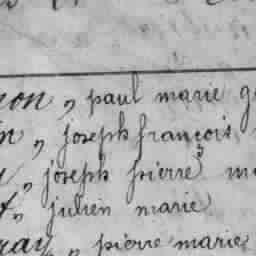 non, paul marie
in, joseph françois
, joseph pierre
, julien marie
ray, pierre marie